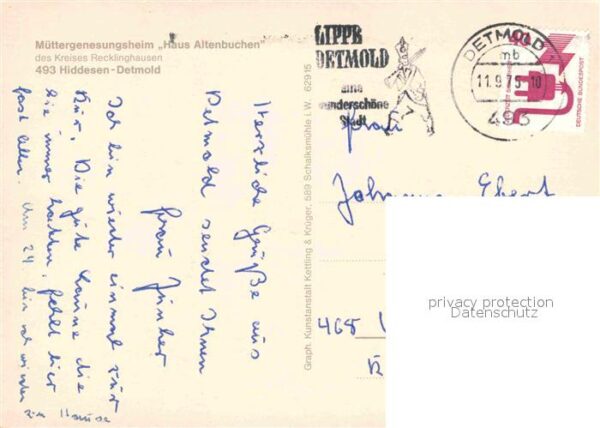 Müttergenesungsheim „Haus Altenbuchen"
des Kreises Recklinghausen
493 Hiddesen-Detmold
LIPPE
DETMOLD
eine
wunderschöne
Stadt
DETMOLD
mb
11.9.75-10
493
40
DEUTSCHE BUNDESPOST
Graph. Kunstanstalt Kettling & Krüger, 589 Schalksmühle i.W. 62915
Herzliche Grüße aus
Detmold sendet Ihnen
Frau Jünher
Ich bin wieder einmal zur
Kur. Die gute Laune die
Sie immer hatten, fehlt hier
fast allen. Am 24. bin ich wieder
zu Hause
Frau
Johanna Ebert
468
privacy protection
Datenschutz